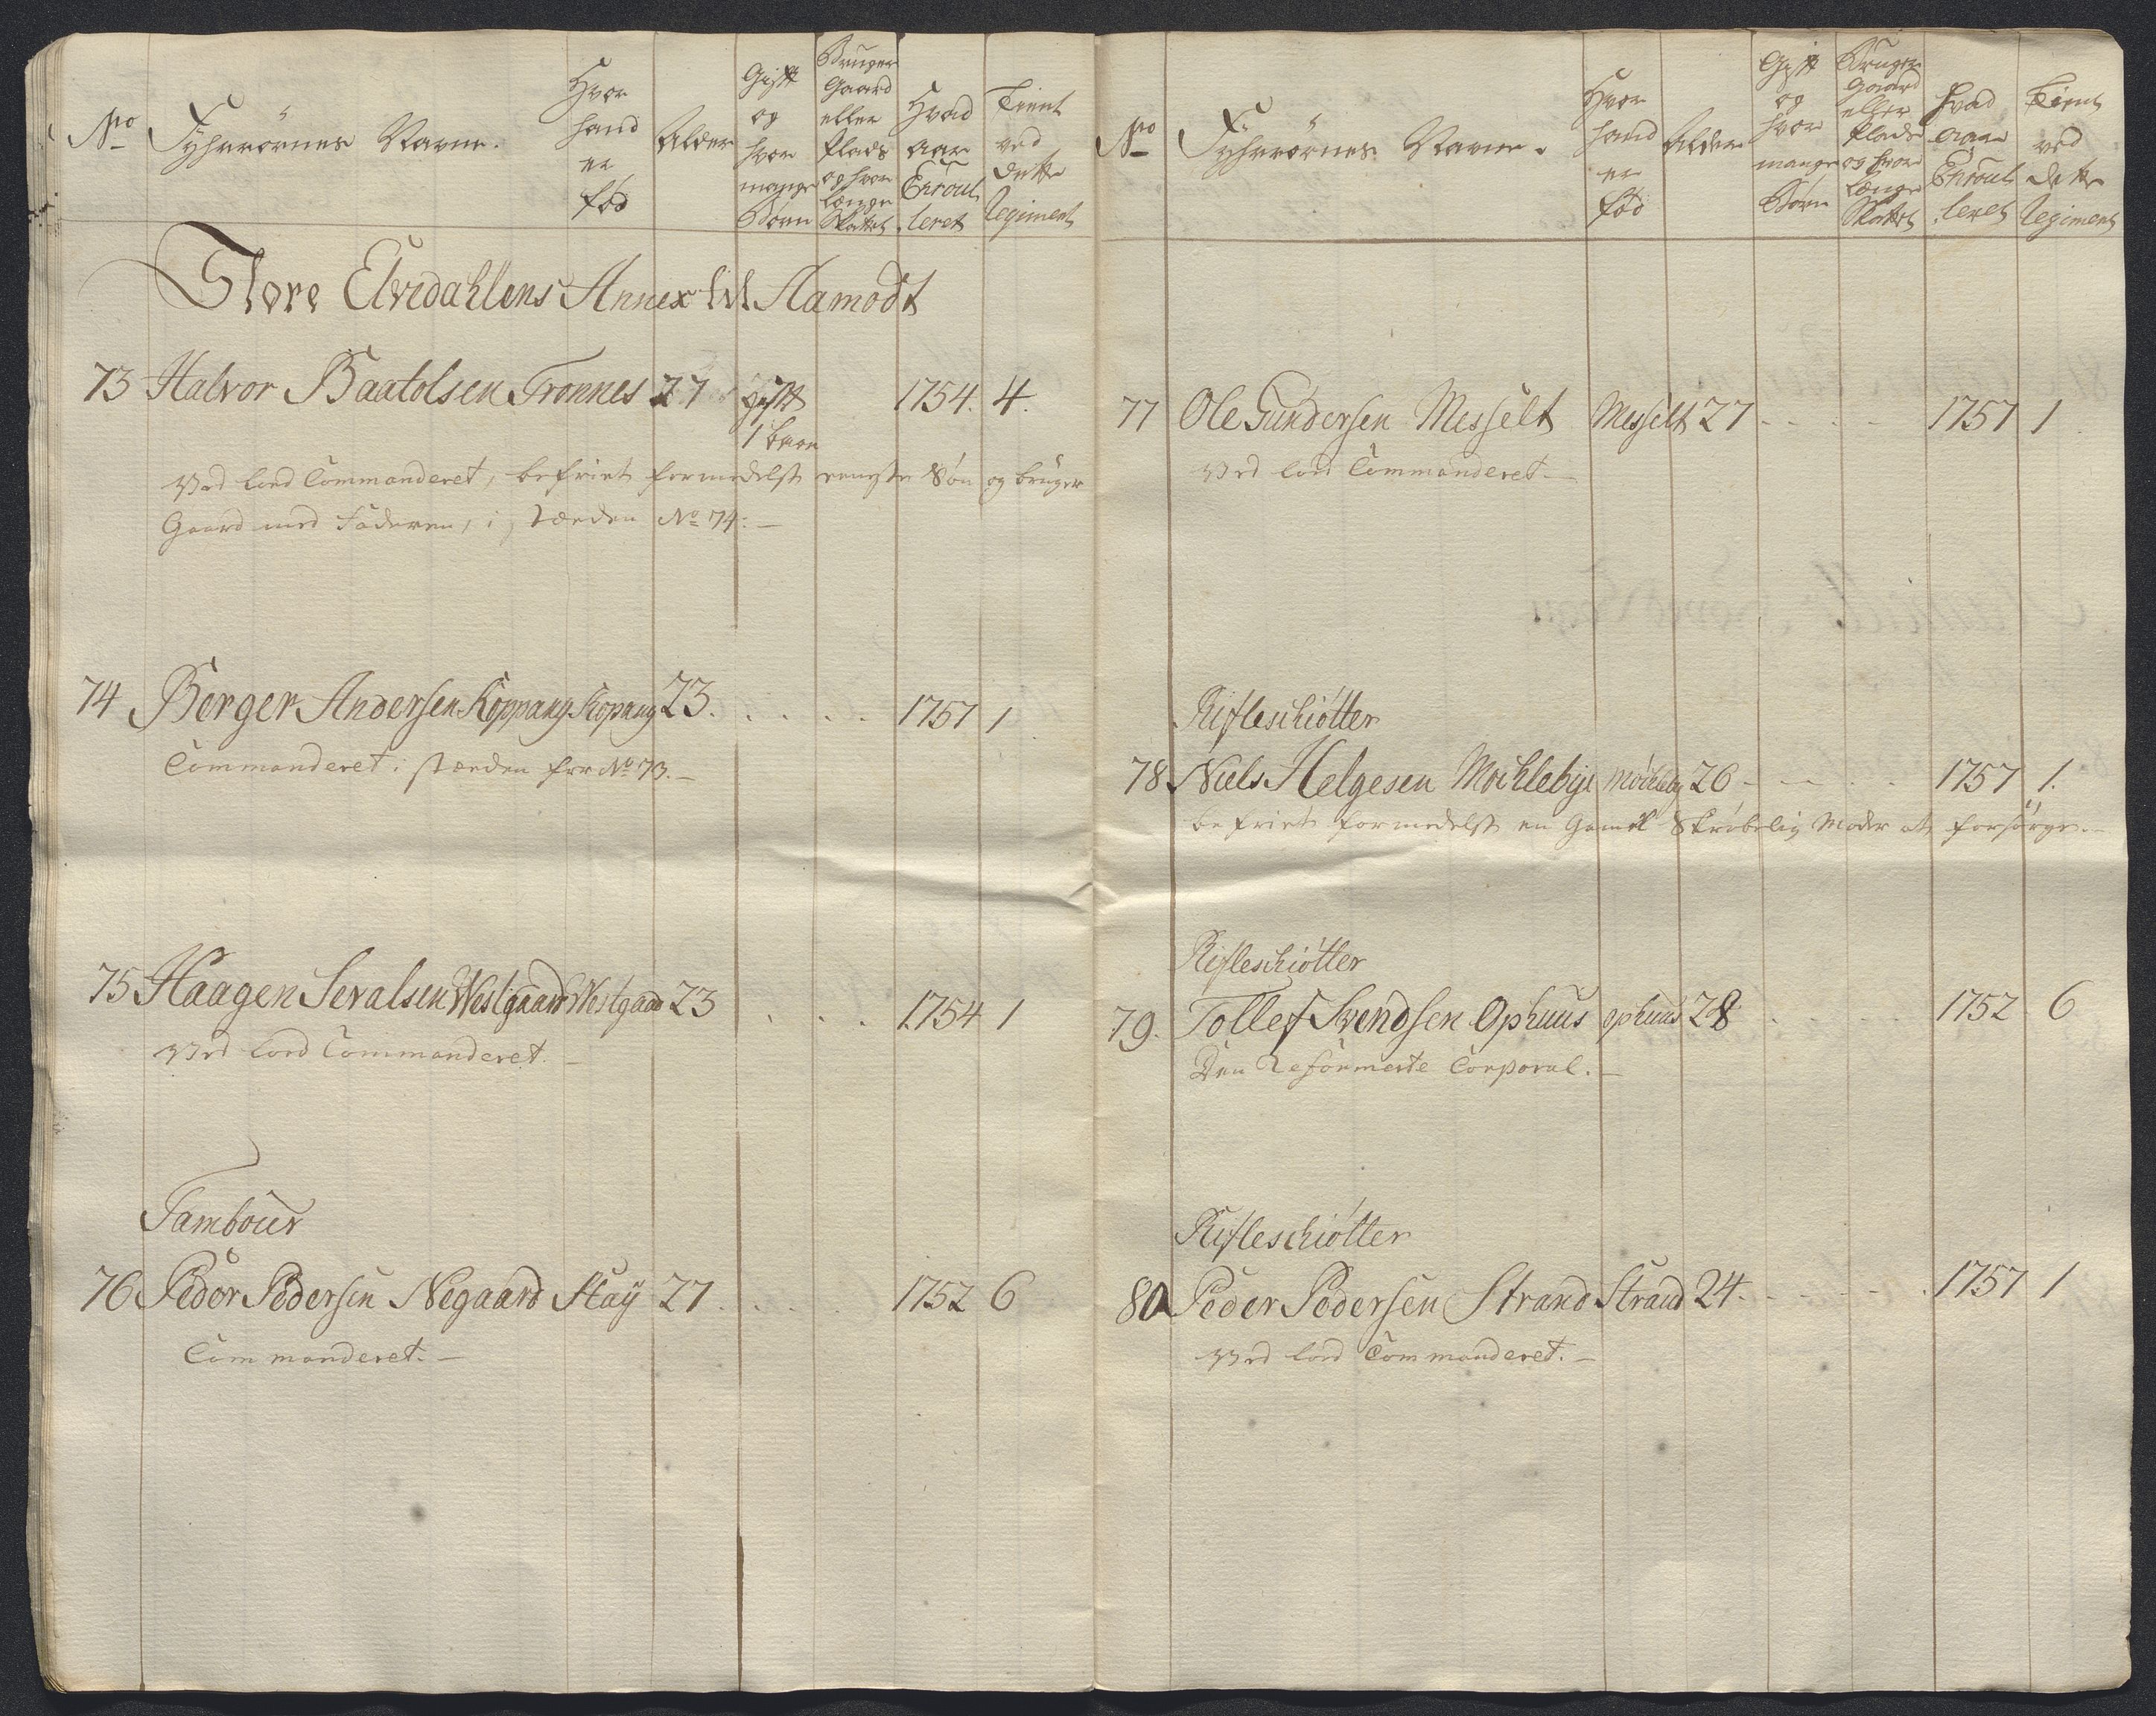 No
Fyhrrørnes Navne.
Hvor
hand
er
fød
Alder
Gift
og
hvor
mange
Børn
Bruger
Gaard
eller
Plads
og hvor
længe
Skattet
Hvad
aar
Enroul
leret
Tient
ved
dette
Regiment
Store Elvedahlens Annex til Aamodt
73 Halvor Baatolsen Tronnes 27 gift 1754. 4.
1 barn
Ved lod Commanderet, befriet formedelst eeneste Søn og bruger
Gaard med Faderen, i stæden No 74. —
74 Berger Andersen Koppang Kopang 23. . . . . . 1757 1
Commanderet i stæden for No 73. —
75 Haagen Sevalsen Westgaard Westgaard 23 . . . . 1754 1
Ved lod Commanderet. —
Tambour
76 Peder Pedersen Negaard Staÿ 27 . . . . . 1752 6
Commanderet. —
No
Fyhrrørnes Navne.
Hvor
hand
er
fød
Alder
Gift
og
hvor
mange
Børn
Bruger
Gaard
eller
Plads
og hvor
længe
Skattet
Hvad
aar
Enroul
leret
Tient
ved
dette
Regiment
77 Ole Gundersen Messelt Messelt 27 - - - - 1757 1
Ved lod Commanderet. —
Rifleschiøtter
78 Niels Helgesen Mochlebye Mochleby 26 - - - - 1757 1.
befriet formedelst en Gamel Skrøbelig Moder at forsørge. —
Rifleschiøtter
79. Tollef Svendsen Ophuus ophuus 28 . . . . . 1752 6
Den Reformerte Corporal. —
Rifleschiøtter
80 Peder Pedersen Strand Strand 24. - - - - . 1757 1
Ved lod Commanderet. —